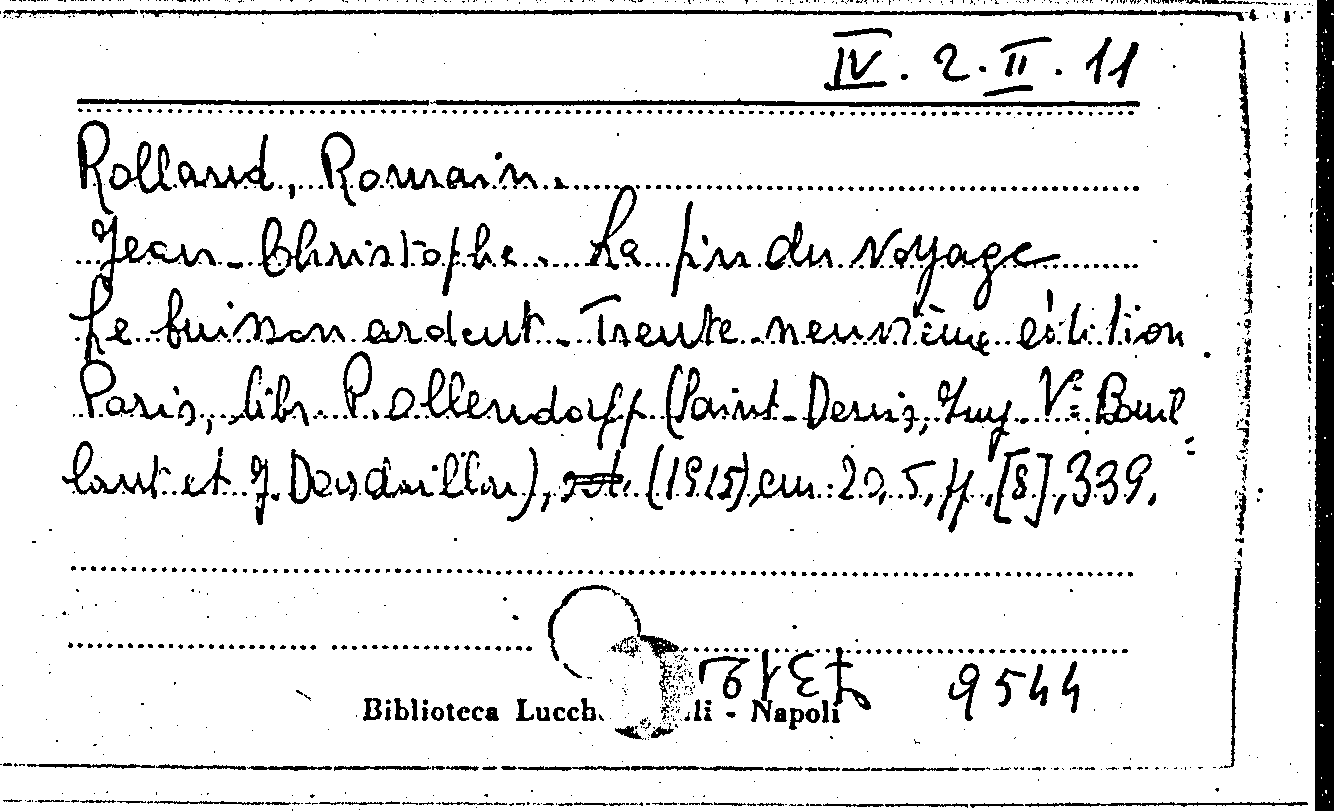 IV. 2. II. 11
Rolland, Romain.
Jean-Christophe. La fin du voyage
Le buisson ardent. Trente-neuvième édition.
Paris, libr. P. Ollendorff (Saint-Denis, Imp. Vᵉ Bouil=
lant et J. Dardaillon), (1915), cm. 20,5, pp. [8], 339.
9544
Biblioteca Lucch li - Napoli